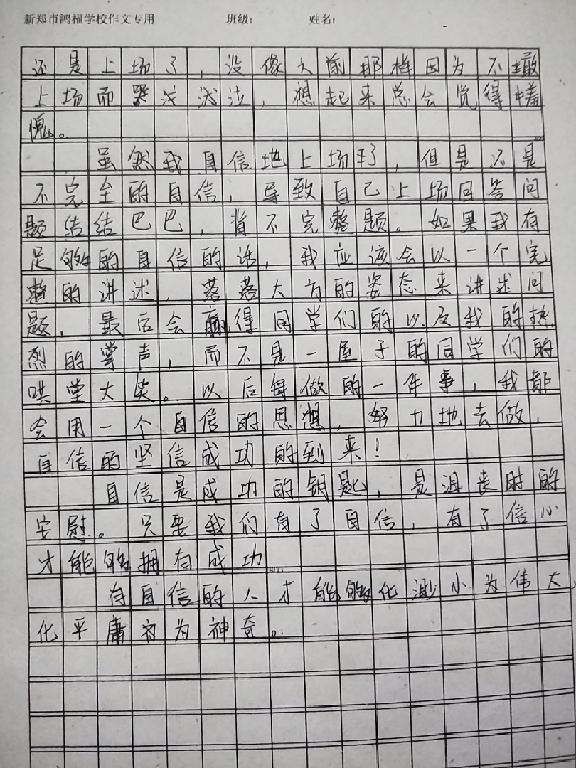 新郑市鸿福学校作文专用 班级： 姓名：
还是上场了，没像大家那样因为不敢
上场而哭泣，想起来总会觉得
愧。
虽然我自信地上场了，但是不是
不完全的自信，导致自己上场回答问
题结结巴巴，首不完整题。如果我有
足够的自信的话，我应该会以一个完
整的讲述，落落大方的姿态来讲述问
题，最后会赢得同学们的以及我的热
烈的掌声，而不是一屋子的同学们的
哄堂大笑。以后每做的一件事，我都
会用一个自信的思想，努力地去做，
自信的坚信成功的到来！
自信是成功的钥匙，是沮丧时的
安慰。只要我们有了自信，有了信心
才能够拥有成功。
有自信的人才能够化渺小为伟大
化平庸为神奇。